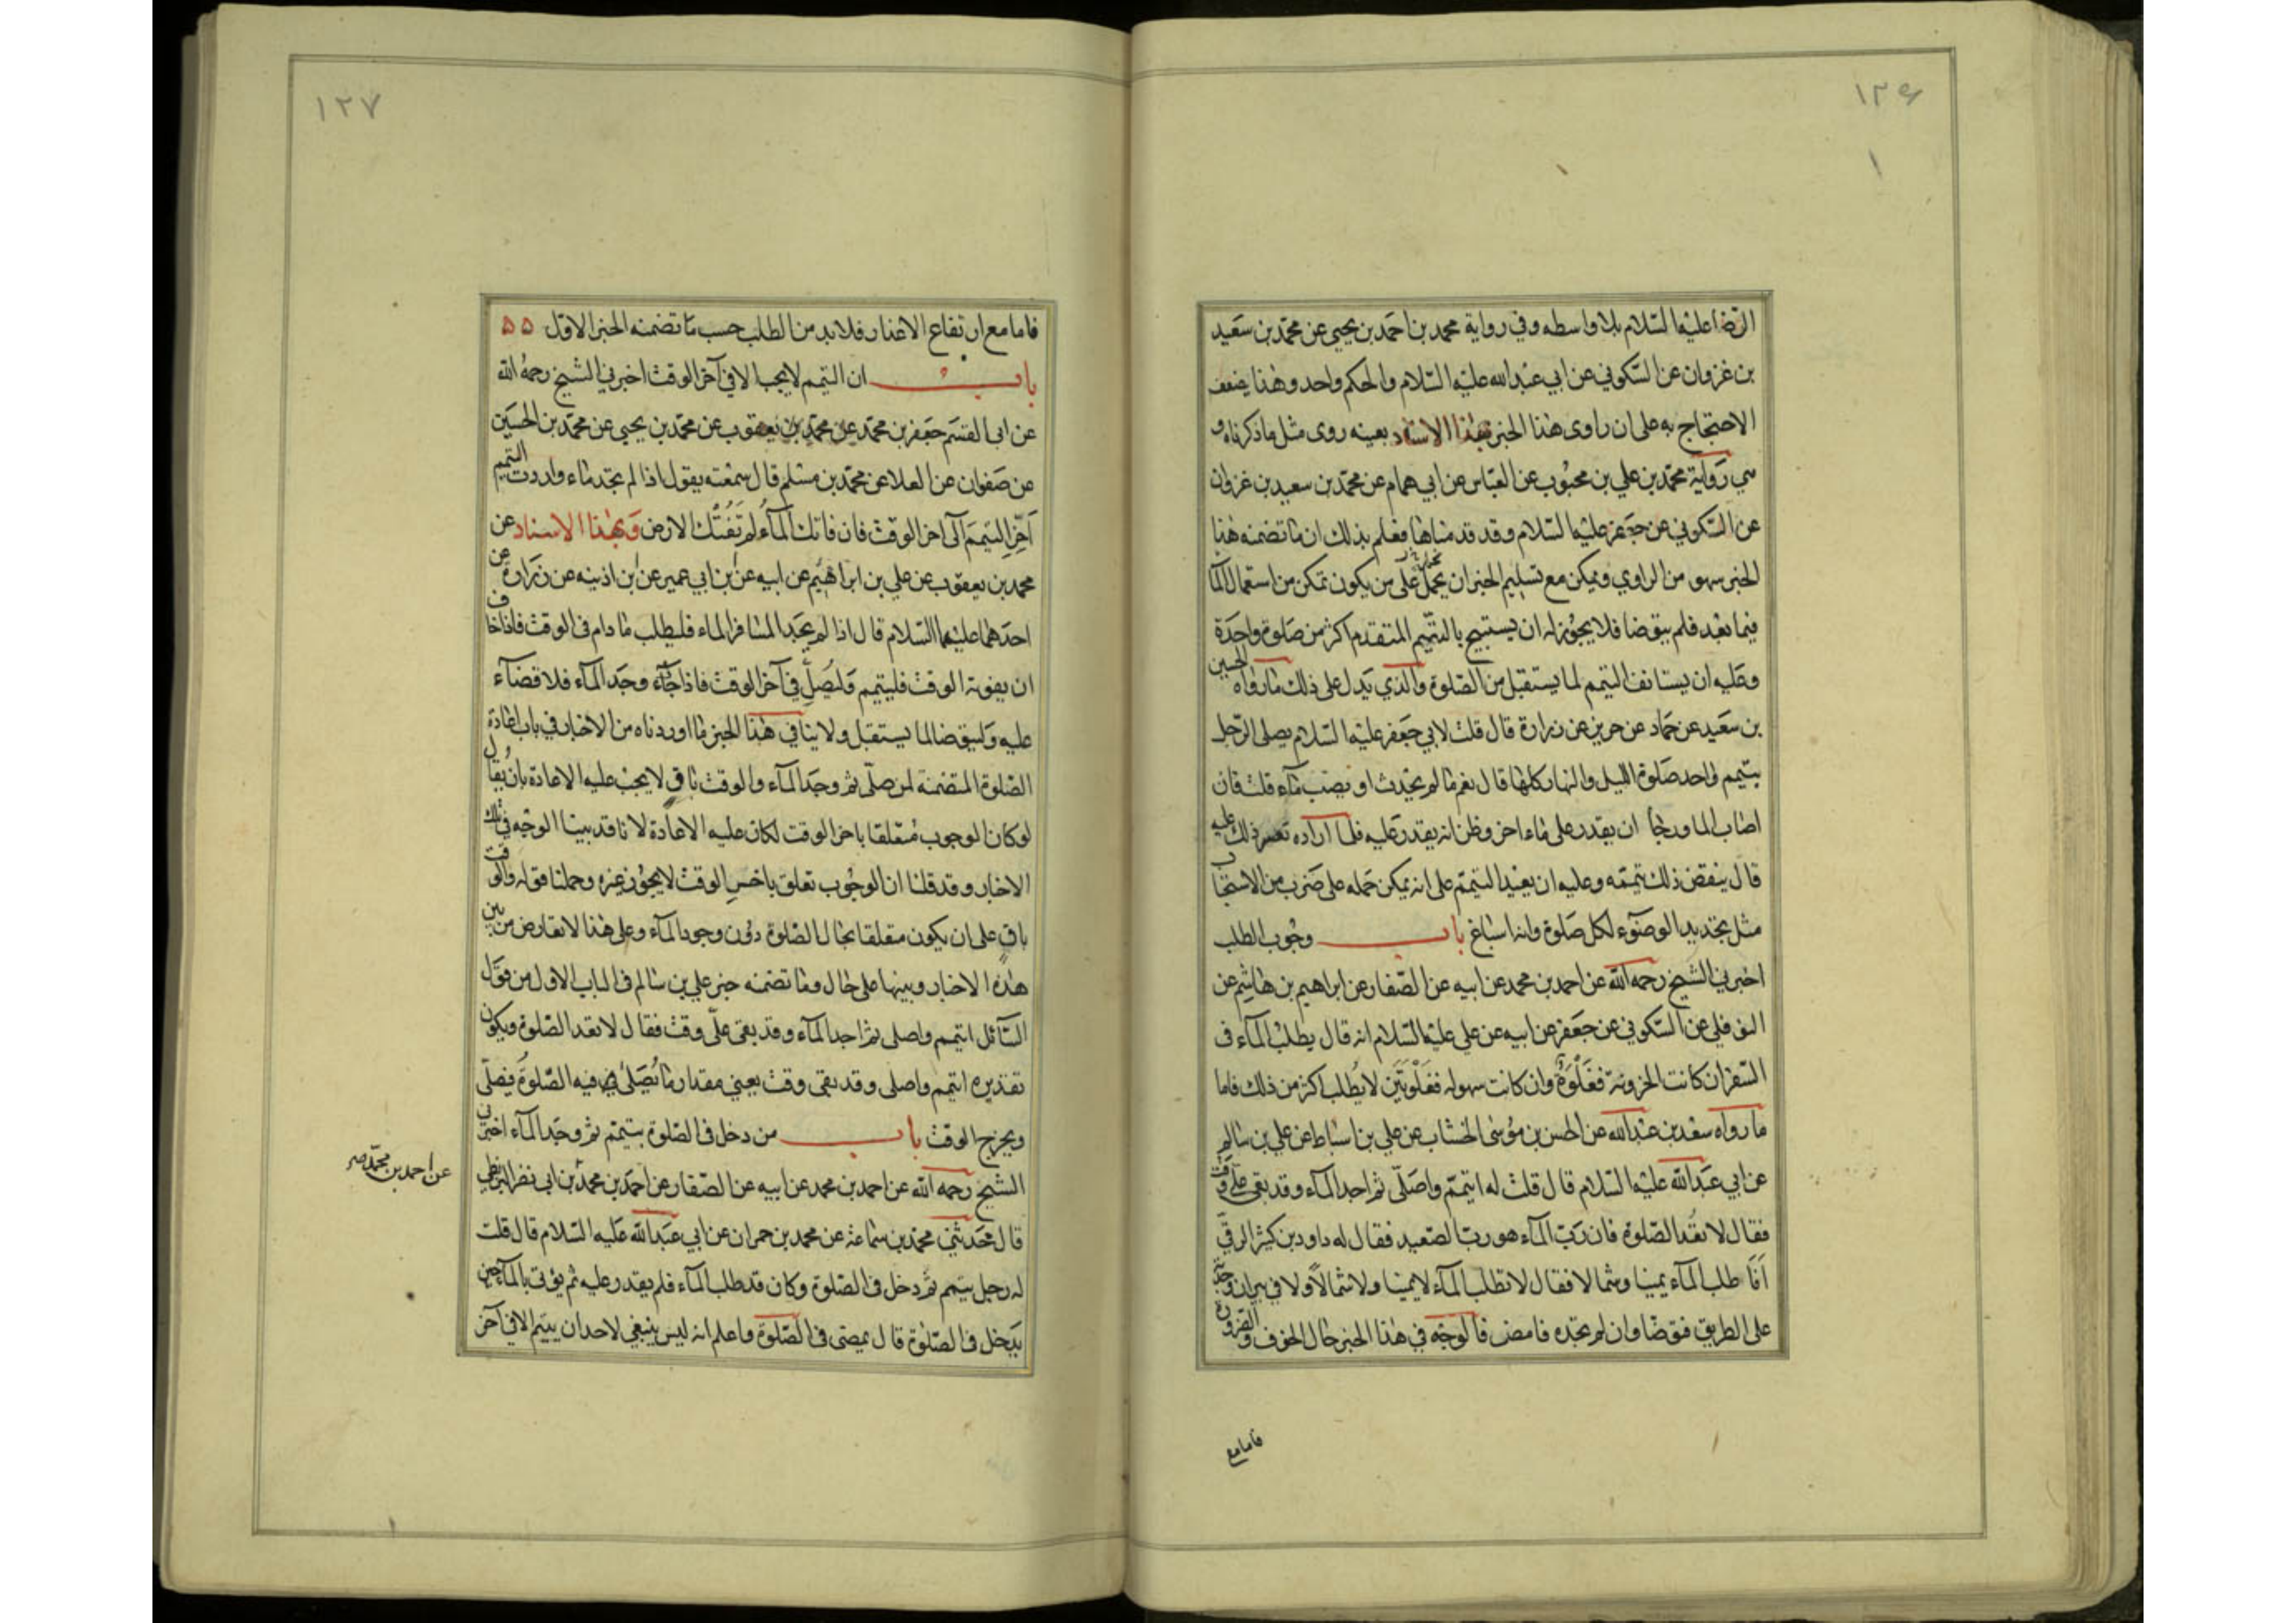 ١٢٦
الرضا عليه السلام بلا واسطه وفي رواية محمد بن احمد بن يحيى عن محمد بن سعيد
بن غزوان عن السكوني عن ابي عبد الله عليه السلام والحكم واحد وهذا يضعف
الاحتجاج به على ان راوى هذا الخبر بهذا الاسناد بعينه روى مثل ما ذكرناه و
هي رواية محمد بن علي بن محبوب عن العباس عن ابي همام عن محمد بن سعيد بن غزوان
عن السكوني عن جعفر عليه السلام وقد قدمناها فعلم بذلك ان ما تضمنه هذا
الخبر سهو من الراوي ويمكن مع تسليم الخبر ان يحمل على من يكون تمكن من استعمال الما
فيما بعد فلم يتوضا فلا يجوز له ان يستبيح بالتيمم المتقدم اكثر من صلوة واحدة
وعليه ان يستانف التيمم لما يستقبل من الصلوة والذي يدل على ذلك ما رواه الحسين
بن سعيد عن حماد عن حريز عن زرارة قال قلت لابي جعفر عليه السلام يصلى الرجل
بتيمم واحد صلوة الليل والنهار كلها قال نعم ما لم يحدث او يصب ماء قلت فان
اصاب الما ورجا ان يقدر على ماء اخر وظن انه يقدر عليه فلما اراده تعسر ذلك عليه
قال ينقض ذلك تيممه وعليه ان يعيد التيمم على انه يمكن حمله على ضرب من الاستحباب
مثل تجديد الوضوء لكل صلوة وانه اسباغ باب وجوب الطلب
اخبرني الشيخ رحمه الله عن احمد بن محمد عن ابيه عن الصفار عن ابراهيم بن هاشم عن
النوفلي عن السكوني عن جعفر عن ابيه عن علي عليه السلام انه قال يطلب الماء في
السفر ان كانت الحزونة فغلوة وان كانت سهوله فغلوتين لا يطلب اكثر من ذلك فاما
ما رواه سعد بن عبد الله عن الحسن بن موسى الخشاب عن علي بن اسباط عن علي بن سالم
عن ابي عبد الله عليه السلام قال قلت له اتيمم واصلى ثم اجد الماء وقد بقى على وقت
فقال لا تعد الصلوة فان رب الماء هو رب الصعيد فقال له داود بن كثير الرقي
افا طلب الماء يمينا وشمالا فقال لا تطلب الماء لا يمينا ولا شمالا ولا في بير ان وجدته
على الطريق فتوضا وان لم تجده فامض فالوجه في هذا الخبر حال الخوف والضرورة
فامامع
١٢٧
فاما مع ارتفاع الاعذار فلا بد من الطلب حسب ما تضمنه الخبر الاول ۵۵
باب ان التيمم لا يجب الا في آخر الوقت اخبرني الشيخ رحمه الله
عن ابي القسم جعفر بن محمد عن محمد بن يعقوب عن محمد بن يحيى عن محمد بن الحسين
عن صفوان عن العلا عن محمد بن مسلم قال سمعته يقول اذا لم تجد ماء واردت التيمم
اخر التيمم الى اخر الوقت فان فاتك الماء لم تفتك الارض وبهذا الاسناد عن
محمد بن يعقوب عن علي بن ابراهيم عن ابيه عن ابن ابي عمير عن ابن اذينه عن زرارة عن
احدهما عليهما السلام قال اذا لم يجد المسافر الماء فليطلب ما دام في الوقت فاذا خاف
ان يفوته الوقت فليتيمم وليصل في آخر الوقت فاذا وجد الماء فلا قضاء
عليه وليتوضا لما يستقبل ولا ينافي هذا الخبر ما اوردناه من الاخبار في باب اعادة
الصلوة المتضمنة لمن صلى ثم وجد الماء والوقت باق لا يجب عليه الاعادة بان يقال
لو كان الوجوب متعلقا باخر الوقت لكان عليه الاعادة لانا قد بينا الوجه في تلك
الاخبار وقد قلنا ان الوجوب تعلق باخر الوقت لا يجوز غيره وحملنا قوله والوقت
باق على ان يكون متعلقا بحال الصلوة دون وجود الماء وعلى هذا لا تعارض من بين
هذه الاخبار وبينها على حال وما تضمنه خبر علي بن سالم في الباب الاول من قول
السائل اتيمم واصلى ثم اجد الماء وقد بقى على وقت فقال لا تعد الصلوة ويكون
تقديره اتيمم واصلى وقد بقى وقت يعني مقدار ما يصلى فيه الصلوة فيصلى
ويخرج الوقت باب من دخل في الصلوة بتيمم ثم وجد الماء اخبرني
الشيخ رحمه الله عن احمد بن محمد عن ابيه عن الصفار عن احمد بن محمد بن ابي نصر البزنطي
عن احمد بن محمد صح
قال حدثني محمد بن سماعة عن محمد بن حمران عن ابي عبد الله عليه السلام قال قلت
له رجل يتيمم ثم دخل في الصلوة وكان قد طلب الماء فلم يقدر عليه ثم يؤتى بالماء حين
يدخل في الصلوة قال يمضى في الصلوة واعلم انه ليس ينبغي لاحد ان يتيمم الا في آخر